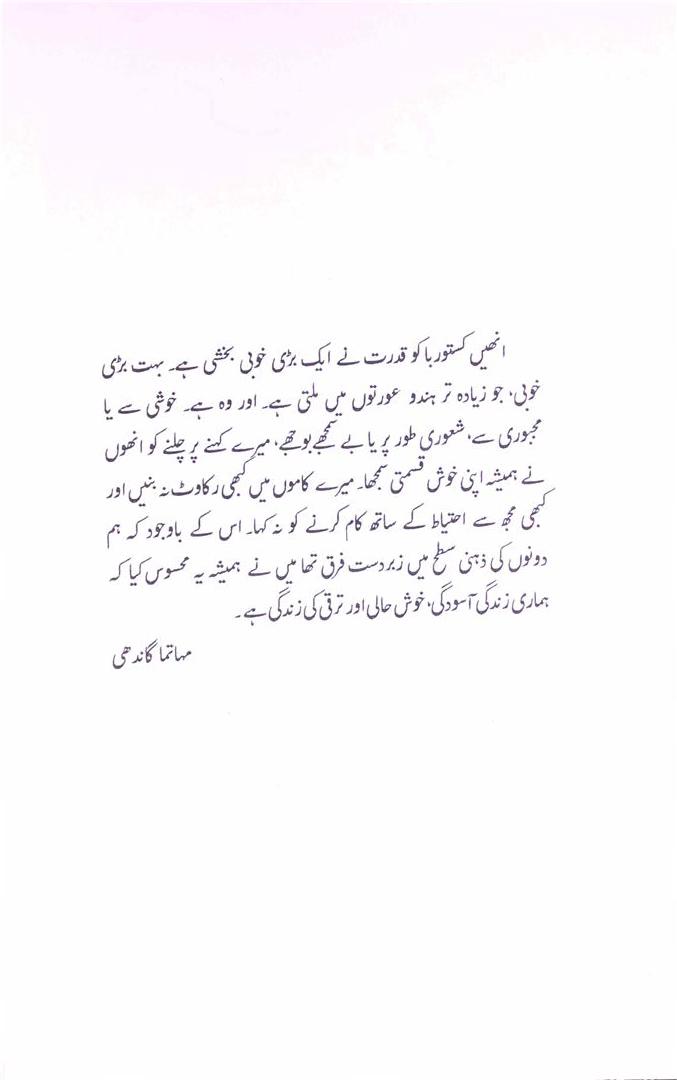 انھیں کستور با کو قدرت نے ایک بڑی خوبی بخشی ہے۔ بہت بڑی
خوبی، جو زیادہ تر ہندو عورتوں میں ملتی ہے۔ اور وہ ہے۔ خوشی سے یا
مجبوری سے، شعوری طور پر یا بے سمجھے بوجھے، میرے کہنے پر چلنے کو انھوں
نے ہمیشہ اپنی خوش قسمتی سمجھا۔ میرے کاموں میں کبھی رکاوٹ نہ بنیں اور
کبھی مجھ سے احتیاط کے ساتھ کام کرنے کو نہ کہا۔ اس کے باوجود کہ ہم
دونوں کی ذہنی سطح میں زبردست فرق تھا میں نے ہمیشہ یہ محسوس کیا کہ
ہماری زندگی آسودگی، خوش حالی اور ترقی کی زندگی ہے۔
مہاتما گاندھی